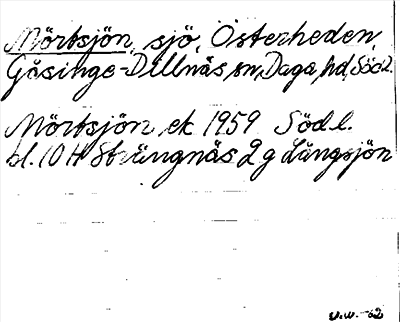 Mörtsjön, sjö, Österheden,
Gåsinge-Dillnäs sn, Daga hd, Södl.
Mörtsjön ek 1959 Södl.
bl. 10 H Strängnäs 2 g Långsjön
V.W. -62